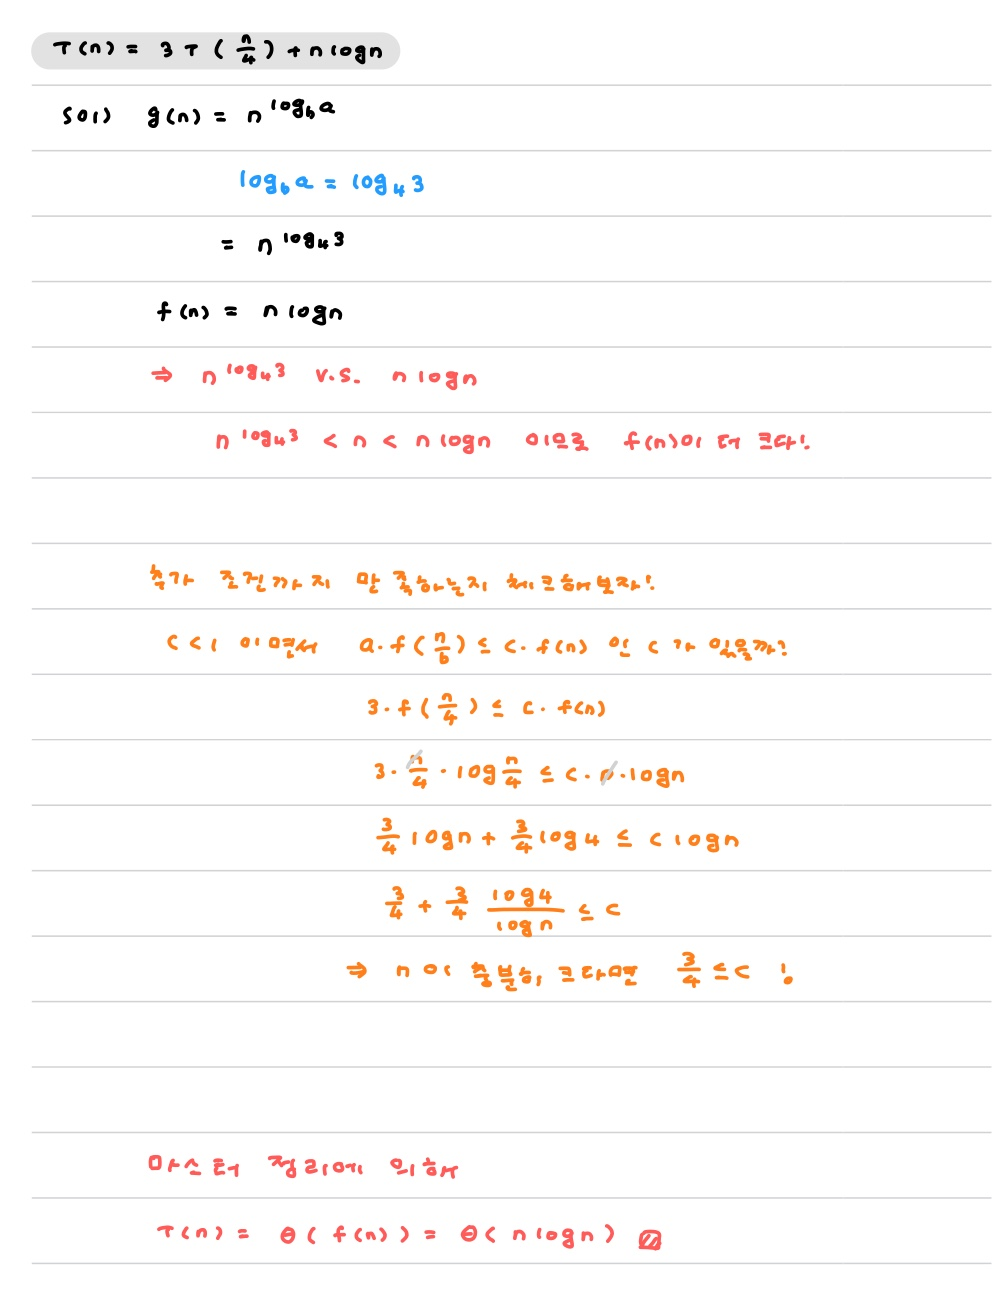 T(n) = 3T(n/4) + nlogn
sol) g(n) = n^log_b a
log_b a = log_4 3
= n^log_4 3
f(n) = nlogn
⇒ n^log_4 3 v.s. nlogn
n^log_4 3 < n < nlogn 이므로 f(n)이 더 크다!
추가 조건까지 만족하는지 체크해보자!
c<1 이면서 a·f(n/b) ≤ c·f(n) 인 c가 있을까?
3·f(n/4) ≤ c·f(n)
3·n/4·log n/4 ≤ c·n·logn
3/4 logn + 3/4 log4 ≤ c logn
3/4 + 3/4 log4/logn ≤ c
⇒ n이 충분히 크다면 3/4 ≤ c !
마스터 정리에 의해
T(n) = θ(f(n)) = θ(nlogn) ▨